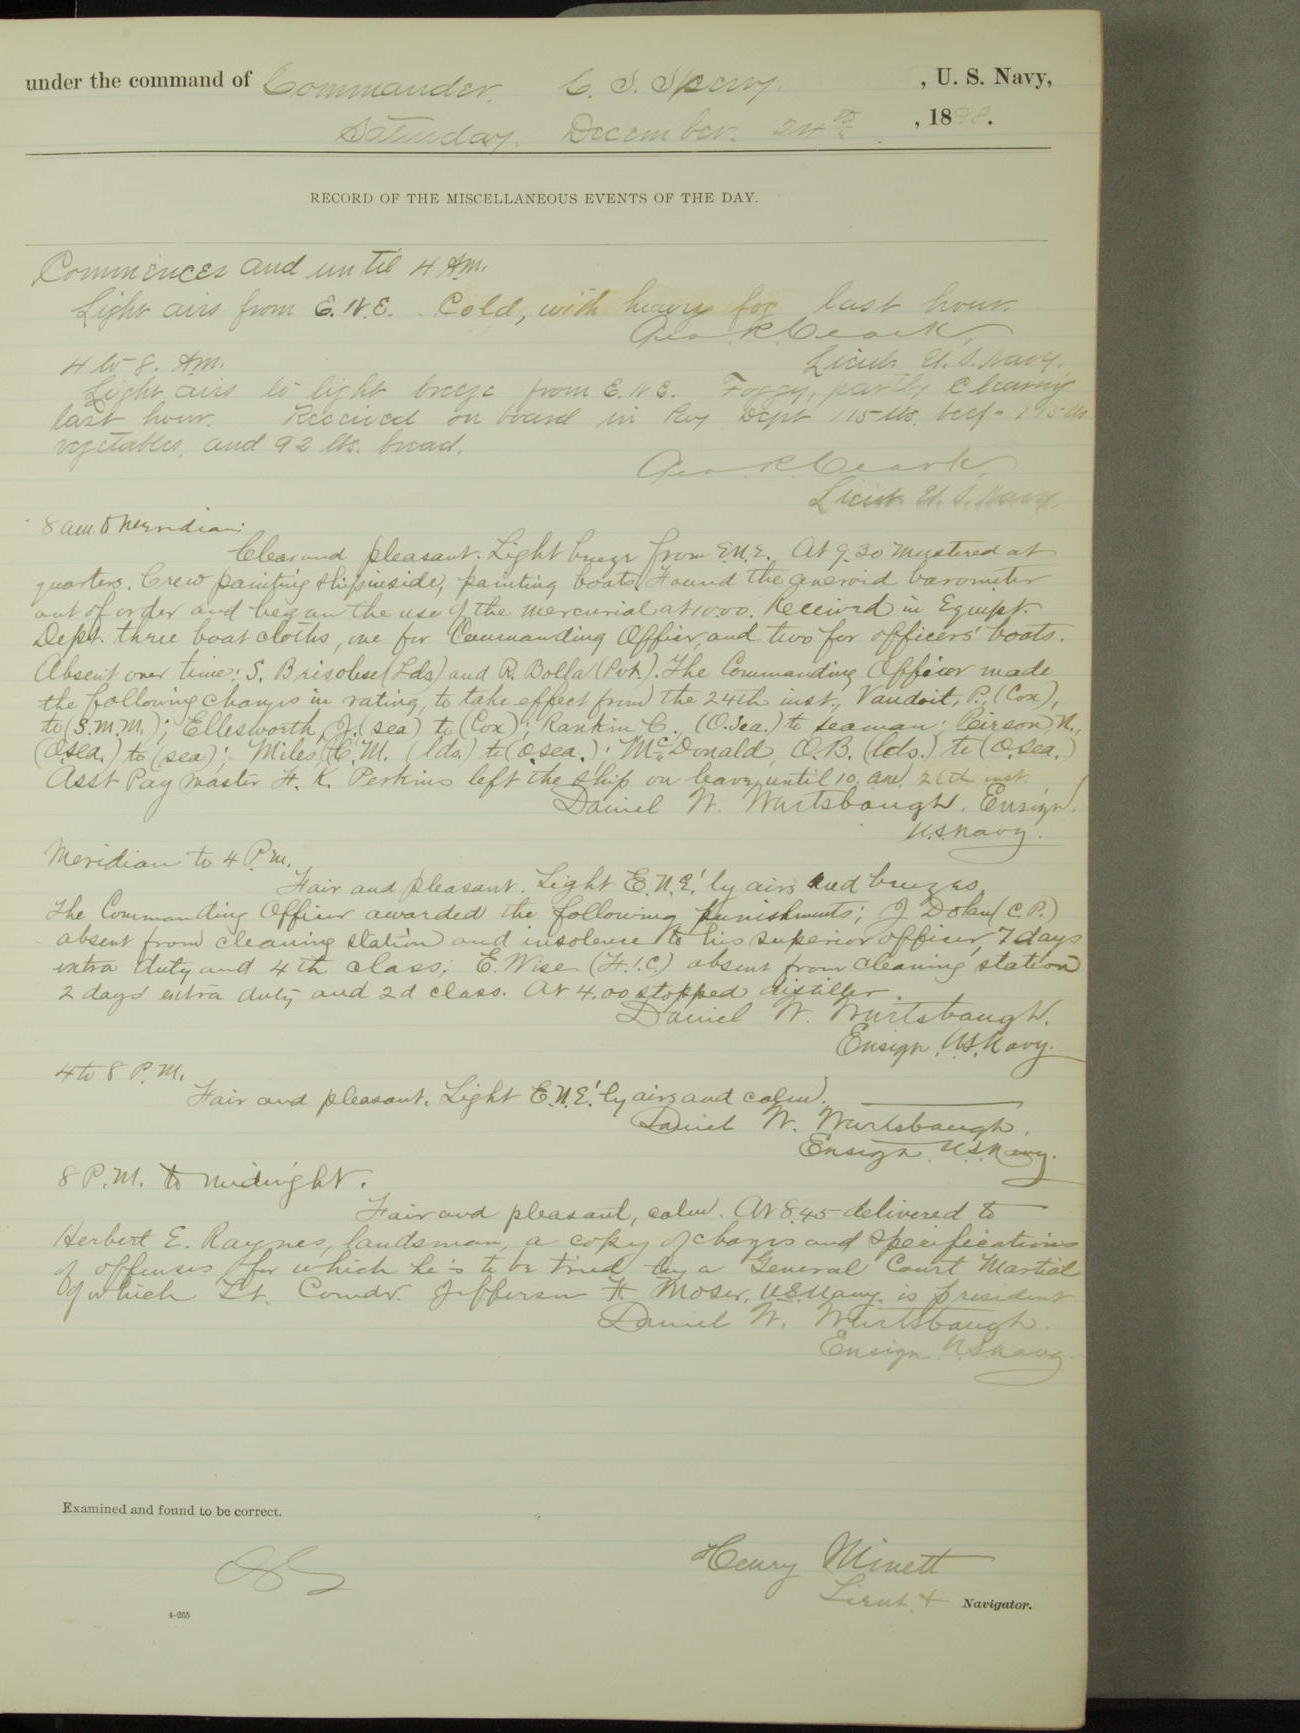 under the command of Commander. C. S. Sperry. , U. S. Navy,
Saturday. December. 24th , 1898.
RECORD OF THE MISCELLANEOUS EVENTS OF THE DAY.
Commences and until 4 Am.
Light airs from E.N.E. Cold, with heavy fog last hour.
Geo. R. Clark,
Lieut. U.S. Navy.
4 to 8. Am.
Light airs to light breeze from E.N.E. Foggy, partly clearing
last hour. Received on board in Pay Dept 115 lbs. beef - 115 lbs
vegetables, and 92 lbs. bread.
Geo. R. Clark,
Lieut. U.S. Navy.
8 am. to Meridian:
Clear and pleasant. Light breeze from E.N.E. At 9.30 mustered at
quarters. Crew painting ship inside, painting boats. Found the aneroid barometer
out of order and began the use of the mercurial at 10.00. Received in Equipt.
Dept. three boat cloths, one for Commanding Officer, and two for officers' boats.
Absent over time: S. Brisolese (Lds) and R. Bolla (Pvt.). The Commanding Officer made
the following changes in rating, to take effect from the 24th inst., Vaudoit, P., (Cox),
to (S.M.M.); Ellesworth, J. (sea) to (Cox); Rankin C., (O.Sea.) to seaman; Pierson, N.,
(O.sea.) to (sea); Miles, C. M. (lds.) to (O.sea.); McDonald, O.B. (lds.) to (O.sea.)
Asst Pay Master H. K. Perkins left the ship on leave, until 10. am. 26th inst.
Daniel W. Wurtsbaugh. Ensign.
U.S. Navy.
Meridian to 4 P.m.
Fair and pleasant. Light E.N.E.'ly airs and breezes.
The Commanding Officer awarded the following punishments; J. Dolan (C.P.)
absent from cleaning station and insolence to his superior officer, 7 days
extra duty and 4th class; E. Wise (F.1.C) absent from cleaning station
2 days extra duty and 2d class. At 4.00 stopped distiller.
Daniel W. Wurtsbaugh.
Ensign. U.S. Navy.
4 to 8 P.M.
Fair and pleasant. Light E.N.E.'ly airs and calm.
Daniel W. Wurtsbaugh.
Ensign U.S. Navy.
8 P.M. to midnight.
Fair and pleasant, calm. At 8.45 delivered to
Herbert E. Raynes, landsman, a copy of charges and specifications
of offenses for which he is to be tried by a General Court Martial
of which Lt. Comdr. Jefferson F. Moser, U.S. Navy. is president
Daniel W. Wurtsbaugh.
Ensign U.S. Navy
Examined and found to be correct.
Henry Minett
Lieut. & Navigator.
4-265